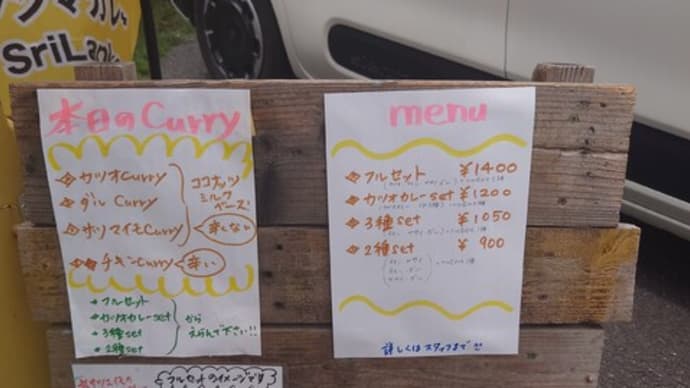 カレー
SriLanka
本日のCurry
カツオCurry
ダル Curry
サツマイモCurry
ココナッツ
ミルク
ベース!
辛くない
チキンCurry
辛い
フルセット
カツオカレーset
3種set
2種set
から
えらんで下さい!!
menu
フルセット ¥1400
カツオカレーset ¥1200
3種set ¥1050
2種set ¥900
詳しくはスタッフまで!!
フルセットのイメージです